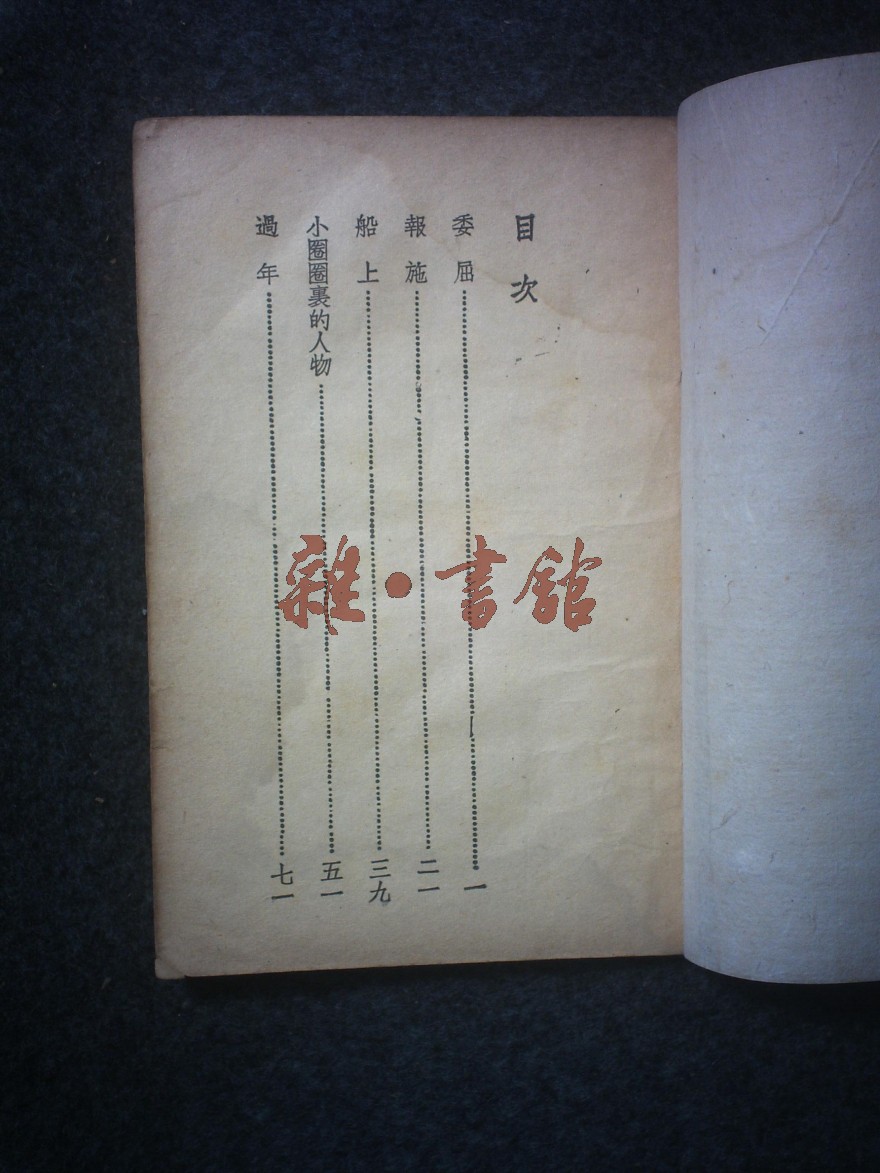 目次
委屈……一
報施……二一
船上……三九
小圈圈裏的人物……五一
過年……七一
雜·書館